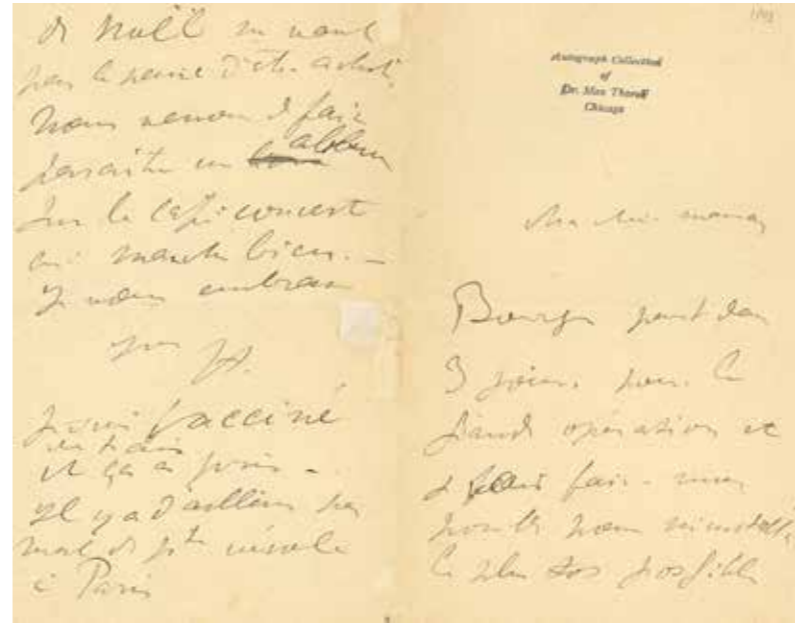 de Noël ne vaut
pas la peine d'être acheté.
Nous venons de faire
paraître un album
sur le café concert
qui marche bien. —
Je vous embrasse
H.
Je suis vacciné
et ça a pris —
Il y a d'ailleurs pas
mal de pte vérole
à Paris
1893
Autograph Collection
of
Dr. Max Thorek
Chicago
Ma chère maman
Bourges part dans
3 jours pour la
grande opération et
je vais faire mon
possible pour
le plus tôt possible